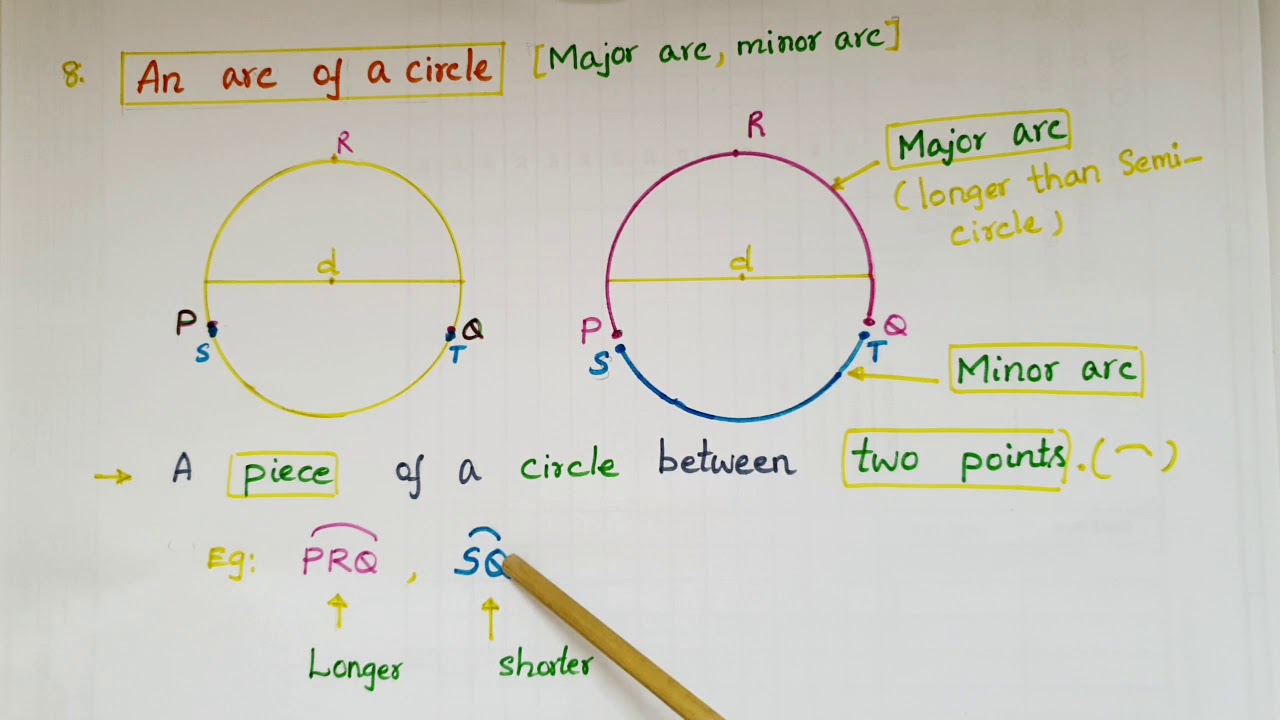 8. An arc of a circle [Major arc, minor arc]
R
d
P
Q
S
T
R
d
P
Q
S
T
Major arc
(longer than Semi-
circle)
Minor arc
→ A piece of a circle between two points. (⌒)
Eg: PRQ, SQ
Longer
shorter